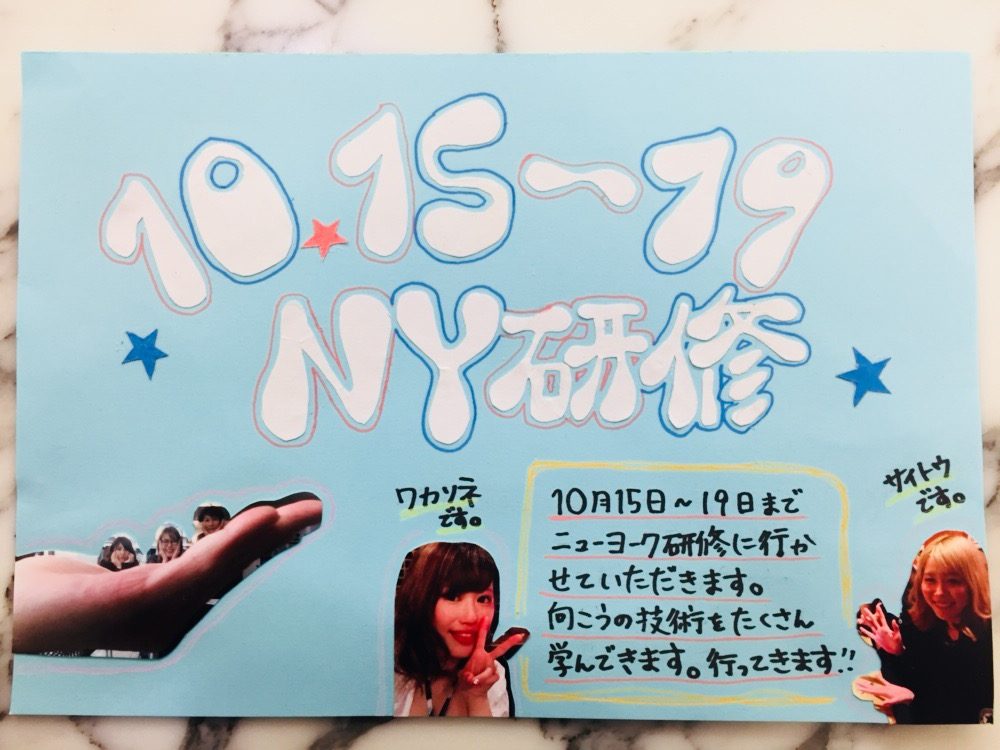 10.15〜19
NY研修
ワカソネ
です。
10月15日〜19日まで
ニューヨーク研修に行か
せていただきます。
向こうの技術をたくさん
学んできます。行ってきます!!
サイトウ
です。